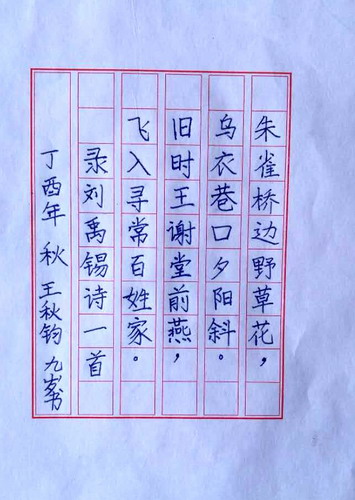 朱雀桥边野草花，
乌衣巷口夕阳斜。
旧时王谢堂前燕，
飞入寻常百姓家。
录刘禹锡诗一首
丁酉年 秋 王秋钧 九岁书